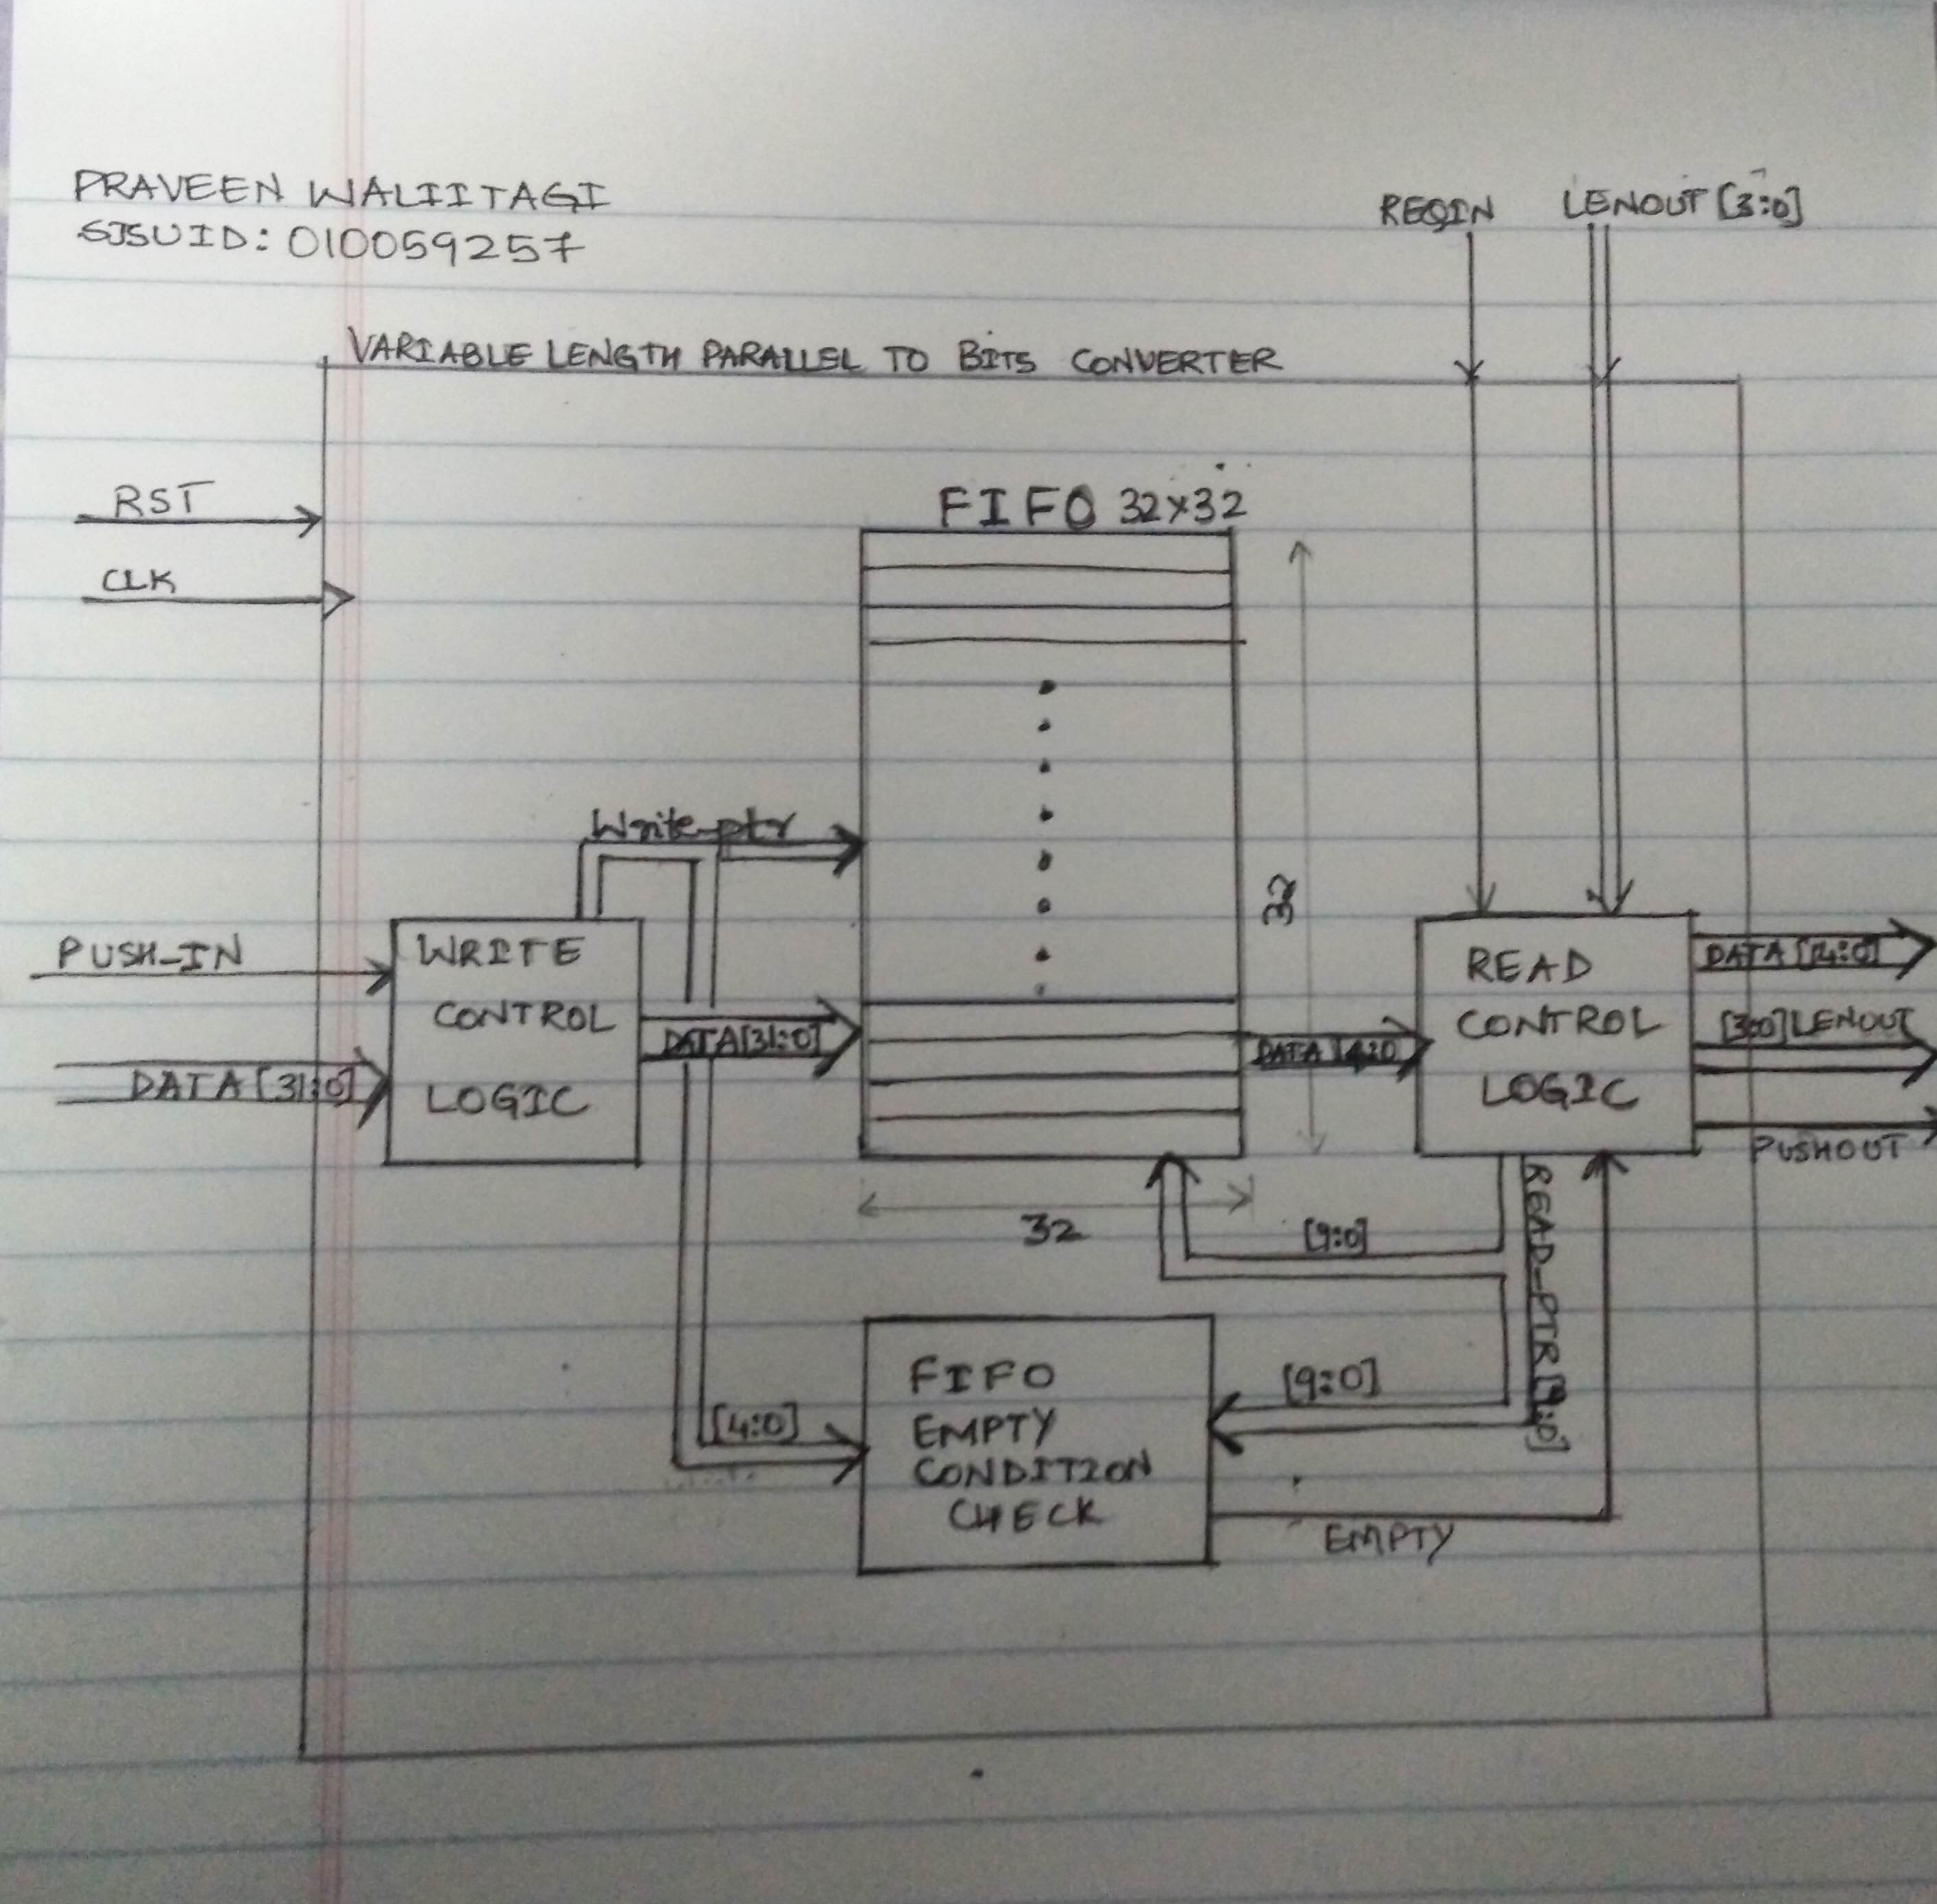 PRAVEEN WALIITAGI
SJSUID: 010059257
REQIN
LENOUT [3:0]
VARIABLE LENGTH PARALLEL TO BITS CONVERTER
RST
CLK
FIFO 32x32
Write-ptr
32
PUSH-IN
DATA [31:0]
WRITE
CONTROL
LOGIC
DATA[31:0]
DATA [4:0]
READ
CONTROL
LOGIC
DATA [14:0]
[3:0] LENOUT
PUSHOUT
32
[9:0]
READ-PTR[9:0]
[4:0]
FIFO
EMPTY
CONDITION
CHECK
[9:0]
EMPTY